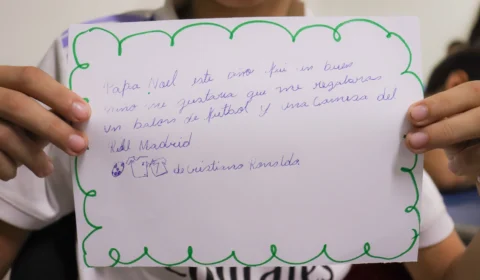 Papa Noel este año fui un buen
niño me gustaria que me regalaras
un balon de futbol y una camisa del
Real Madrid
de cristiano Ronaldo